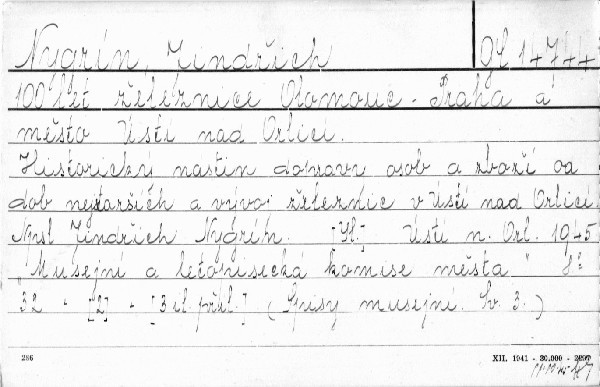 Nygrín, Jindřich Ol 14744
100 let železnice Olomouc - Praha a
město Ústí nad Orlicí.
Historický nástin dopravy osob a zboží od
dob nejstarších a vývoj železnic v Ústí nad Orlicí.
Nps! Jindřich Nygrín. [Il.] Ústí n. Orl. 1945
"Musejní a letopisecká komise města" 8°
32 - [2] - [3 il. příl.] (Spisy musejní. Sv. 3.)
286 XII. 1941 - 30.000 - 2897